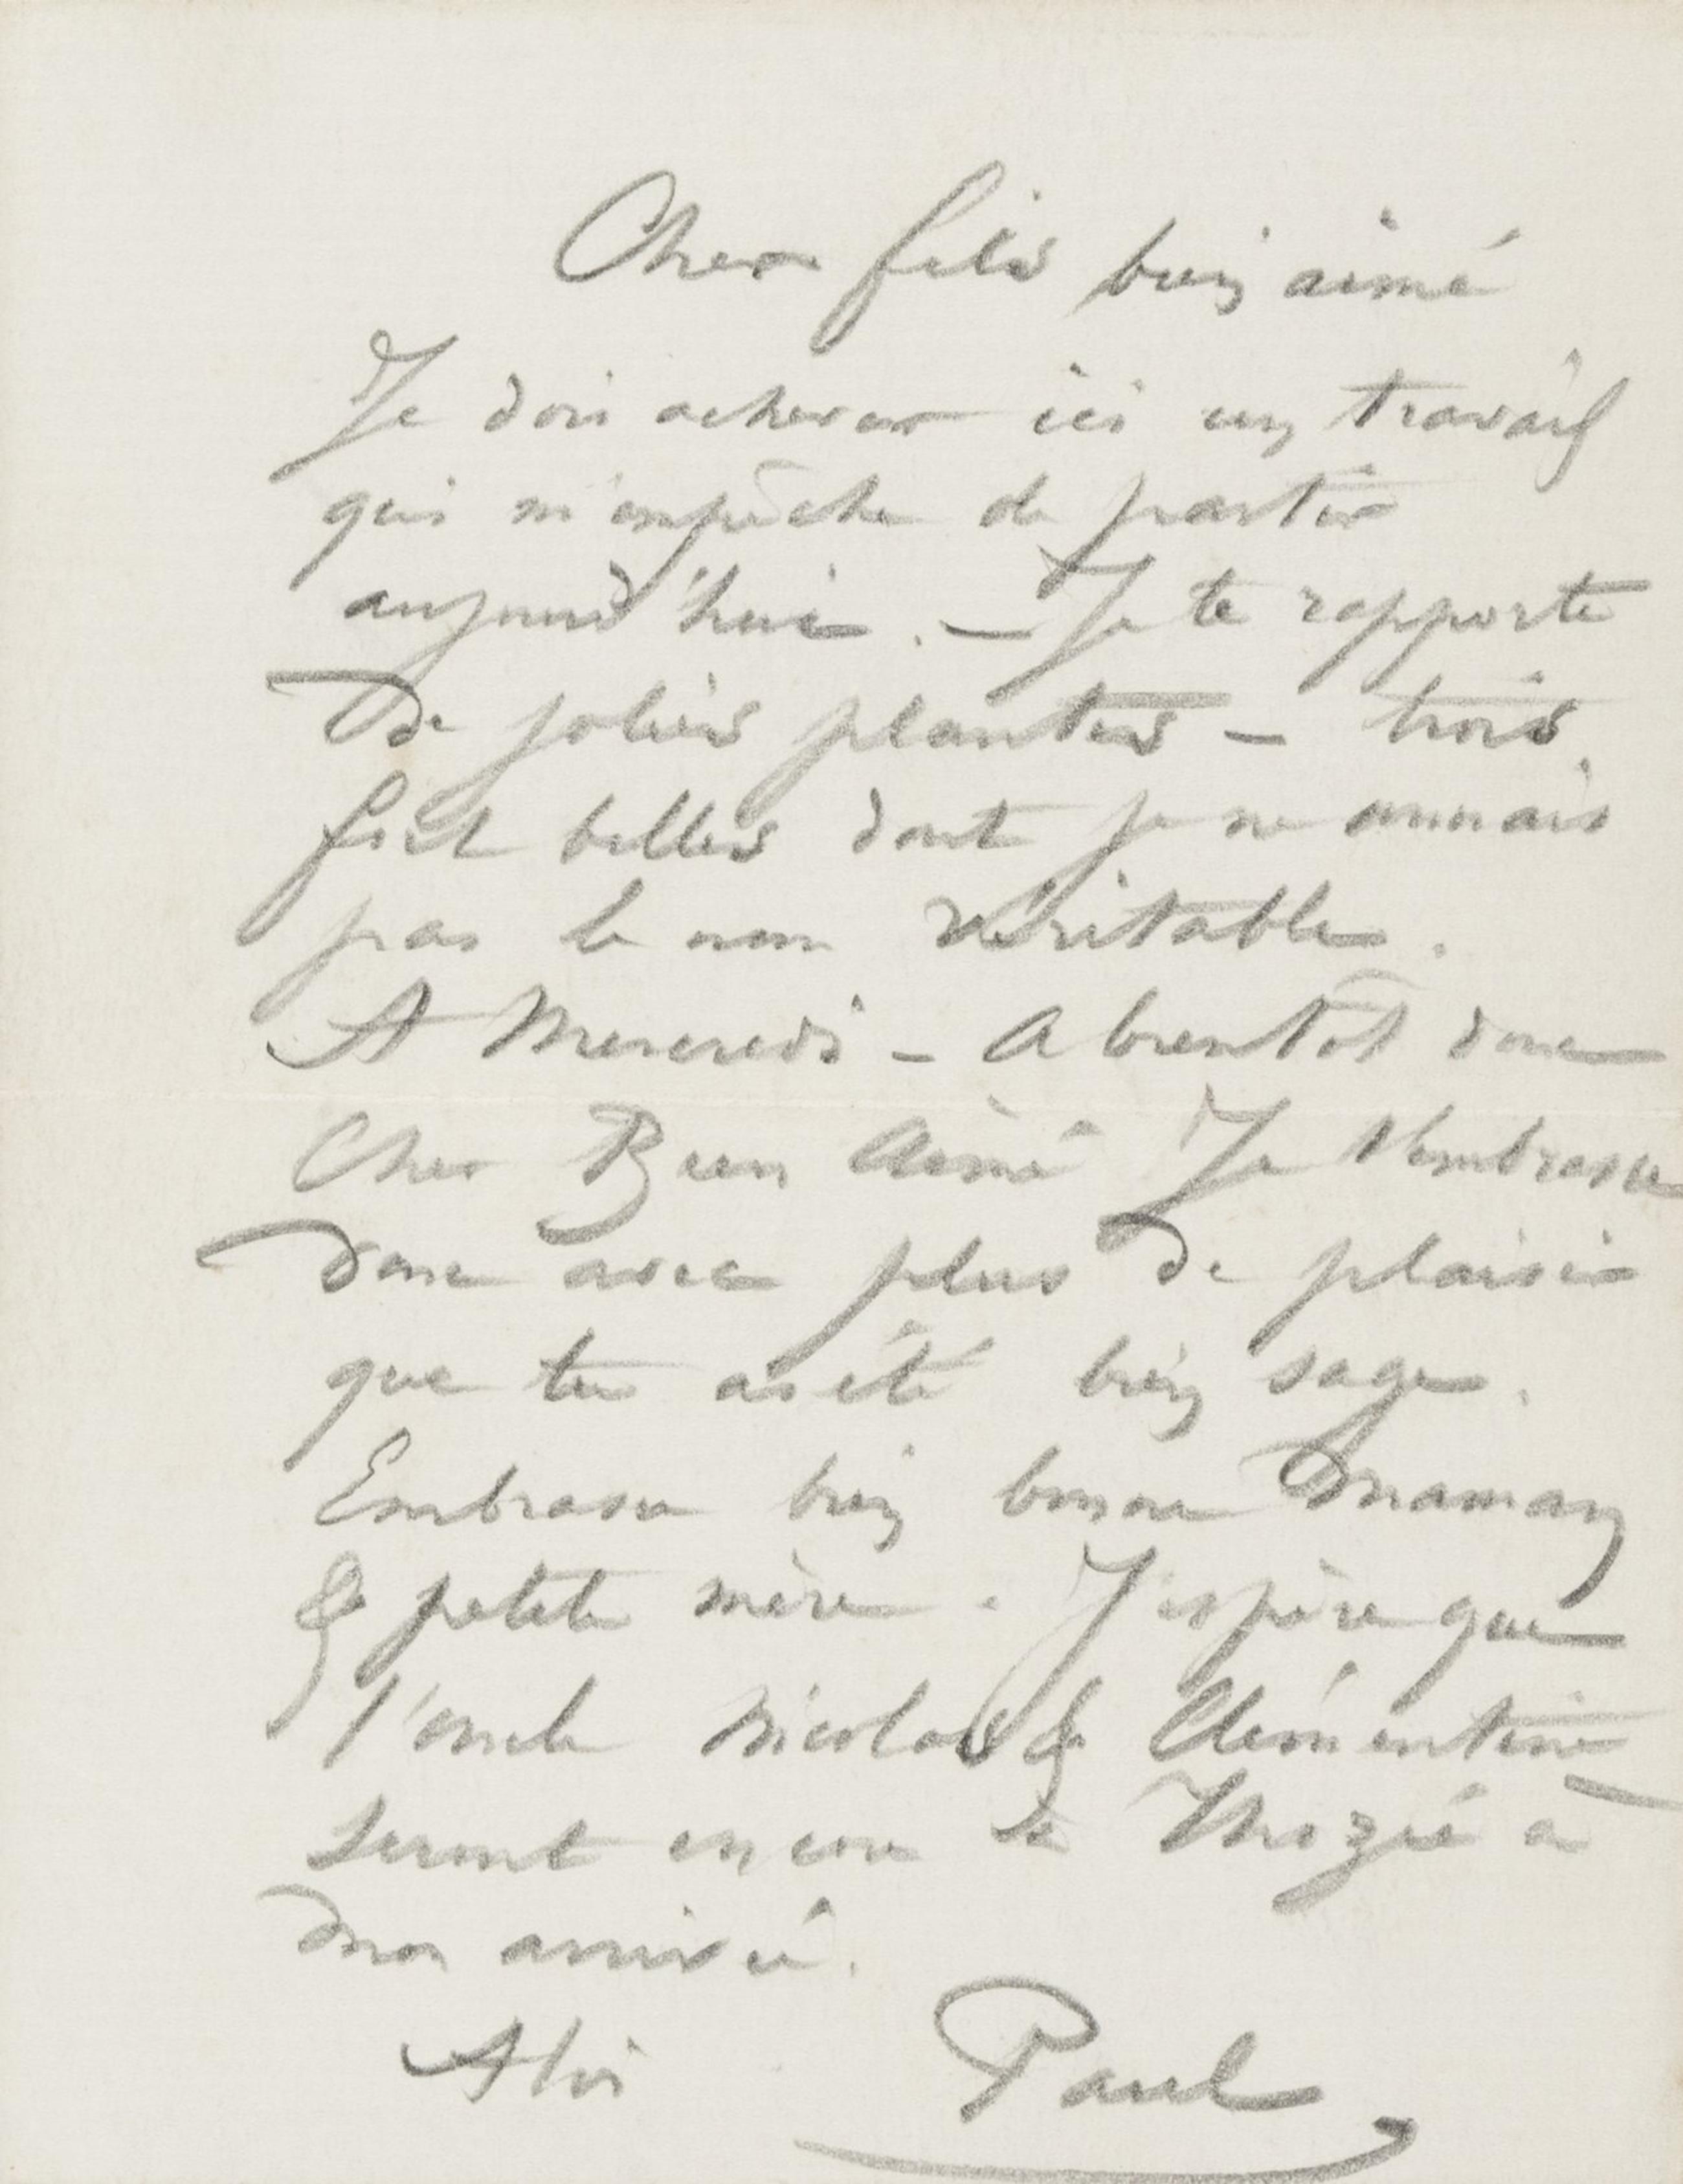 Cher fils bien aimé
Je dois achever ici un travail
qui m'empêche de partir
aujourd'hui. — Je te rapporte
de jolies plantes — trois
fort belles dont je ne connais
pas le nom véritable.
A Mercredi — A bientôt donc
Cher Bien Aimé Je t'embrasse
donc avec plus de plaisir
que tu as été bien sage.
Embrasse bien bonne maman
& petite mère. J'espère que
l'oncle Nicolas & Clémentine
seront encore à à
mon arrivée.
A toi Paul